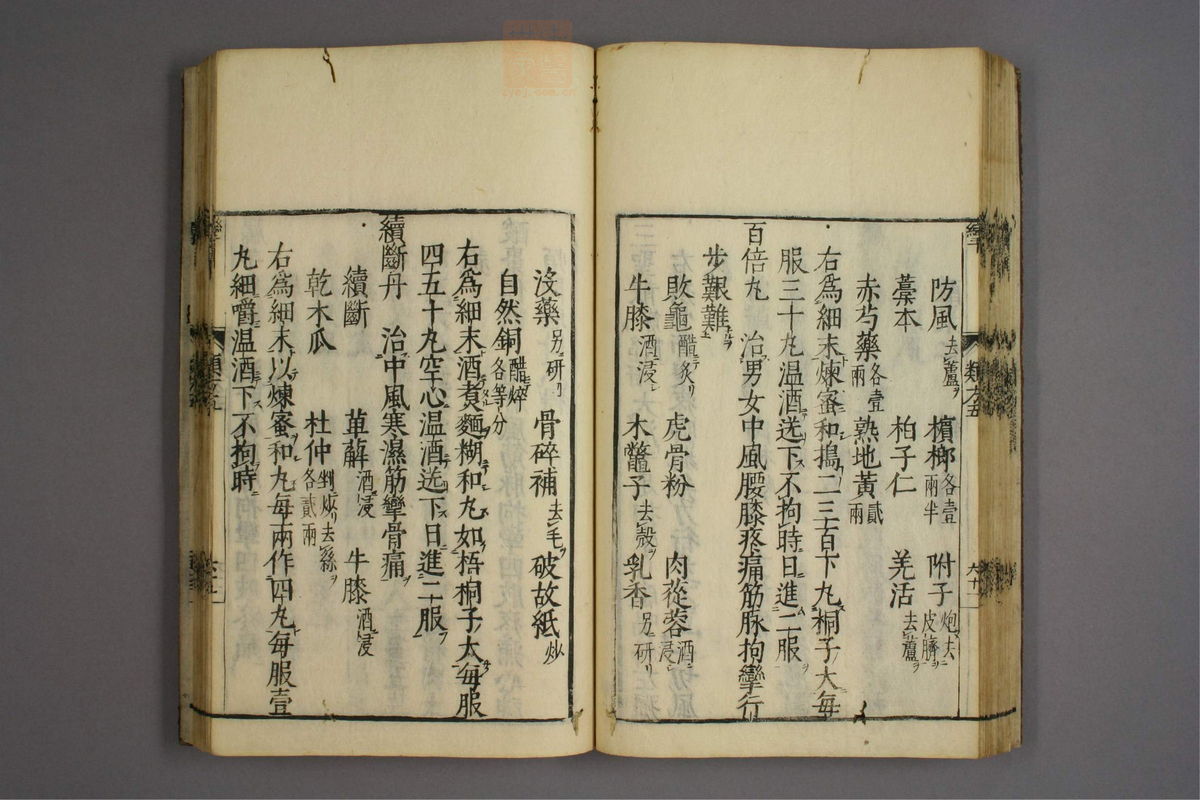 防風去蘆 檳榔各壹兩半 附子炮去皮臍
藁本 柏子仁 羌活去蘆
赤芍藥各壹兩 熟地黃貳兩
右爲細末煉蜜和搗二三百下丸桐子大每
服三十丸温酒送下不拘時日進二服
百倍丸 治男女中風腰膝疼痛筋脉拘攣行
步艱難
敗龜醋炙 虎骨粉 肉蓯蓉酒浸
牛膝酒浸 木鼈子去殼 乳香另研
類方五
六十
没藥另研 骨碎補去毛 破故紙炒
自然銅醋焠各等分
右爲細末酒煮麵糊和丸如梧桐子大每服
四五十丸空心温酒送下日進二服
續斷丹 治中風寒濕筋攣骨痛
續斷 萆薢酒浸 牛膝酒浸
乾木瓜 杜仲剉炒去絲各貳兩
右爲細末以煉蜜和丸每兩作四丸每服壹
丸細嚼温酒下不拘時